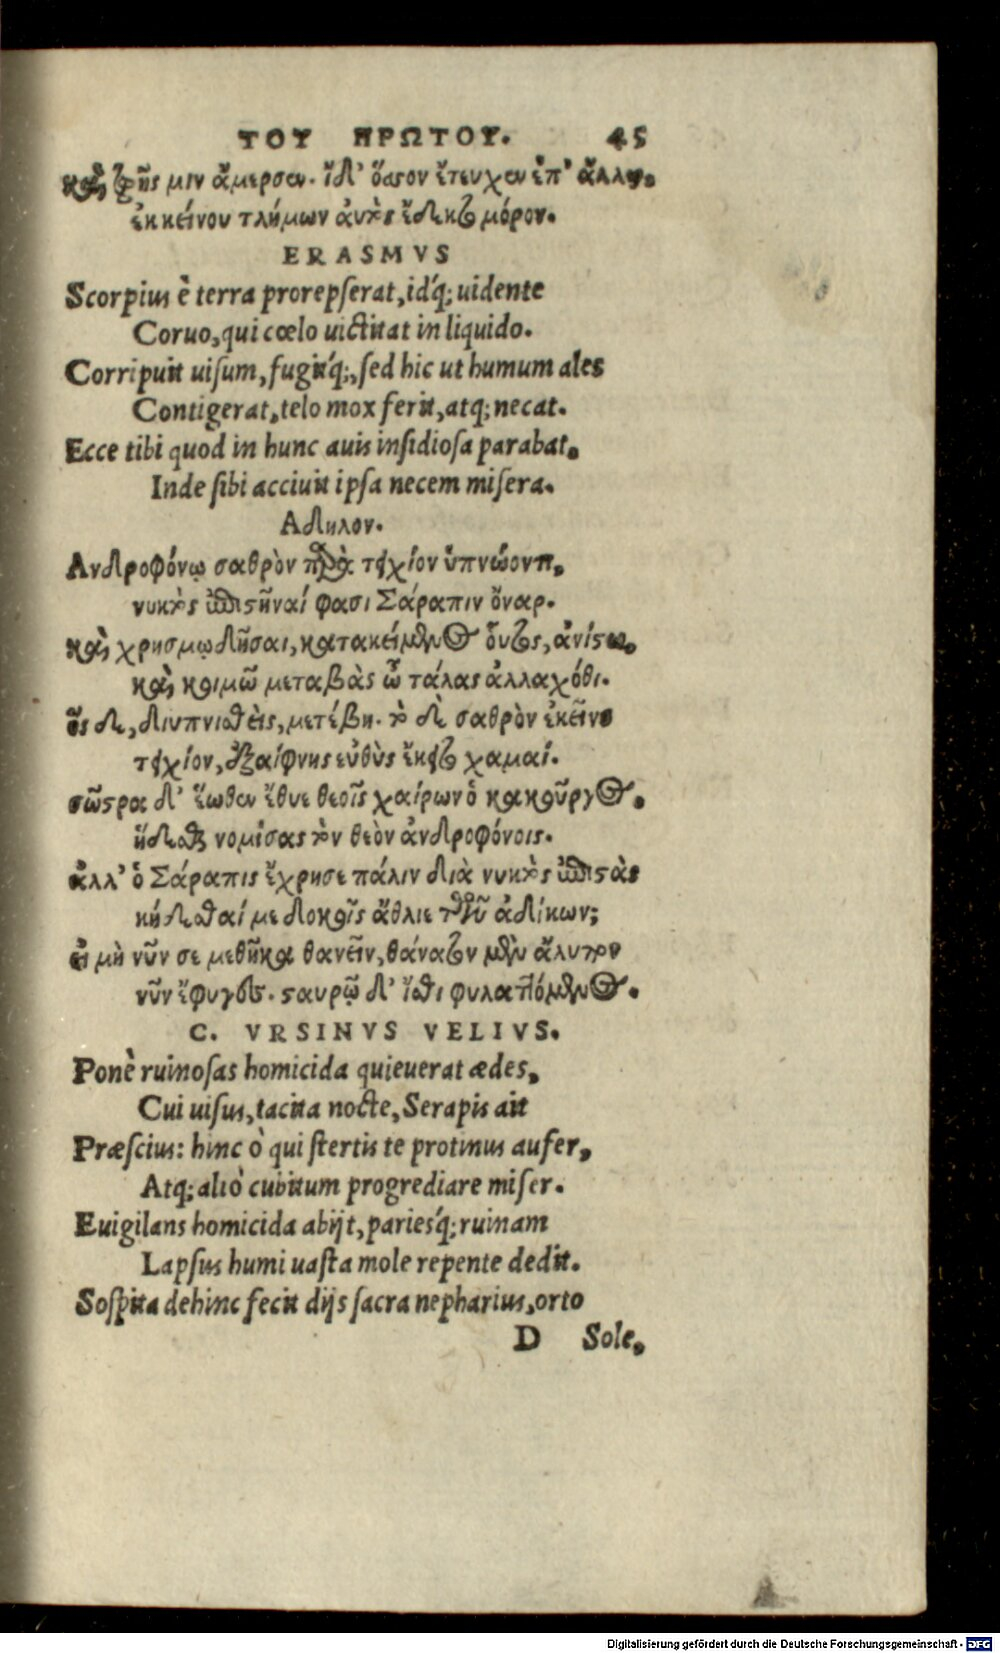 ΤΟΥ ΠΡΩΤΟΥ. 45
καὶ ζωῆς μιν ἄμερσεν. ἴδ' ὅασον ἔτευχεν ἐπ' ἄλλῳ,
ἐκ κείνου τλήμων αὐτὸς ἔδεκτο μόρον.
ERASMVS
Scorpius è terra prorepserat, idq́; uidente
Coruo, qui cœlo uictitat in liquido.
Corripuit uisum, fugitq́;, sed hic ut humum ales
Contigerat, telo mox ferit, atq; necat.
Ecce tibi quod in hunc auis insidiosa parabat,
Inde sibi acciuit ipsa necem misera.
Αδηλον.
Ανδροφόνῳ σαθρὸν παρὰ τειχίον ὑπνώοντι,
νυκτὸς ἐπιστῆναί φασι Σάραπιν ὄναρ.
καὶ χρησμῳδῆσαι, κατακείμενος οὗτος, ἀνίστω,
καὶ κοιμῶ μεταβὰς ὦ τάλας ἀλλαχόθι.
ὃς δὲ, διυπνισθεὶς, μετέβη. τὸ δὲ σαθρὸν ἐκεῖνο
τειχίον, ἐξαίφνης εὐθὺς ἔκειτο χαμαί.
σῶστρα δ' ἕωθεν ἔθυε θεοῖς χαίρων ὁ κακοῦργος,
ἥδεσθαι νομίσας τὸν θεὸν ἀνδροφόνοις.
ἀλλ' ὁ Σάραπις ἔχρησε πάλιν διὰ νυκτὸς ἐπιστὰς
κήδεσθαί με δοκεῖς ἄθλιε τῶν ἀδίκων;
εἰ μὴ νῦν σε μεθῆκα θανεῖν, θάνατον μὲν ἄλυπον
νῦν ἔφυγες. σταυρῷ δ' ἴσθι φυλαττόμενος.
C. VRSINVS VELIVS.
Ponè ruinosas homicida quieuerat ædes,
Cui uisus, tacita nocte, Serapis ait
Præscius: hinc ò qui stertis te protinus aufer,
Atq; aliò cubitum progrediare miser.
Euigilans homicida abijt, pariesq́; ruinam
Lapsus humi uasta mole repente dedit.
Sospita dehinc fecit dijs sacra nepharius, orto
D Sole,
Digitalisierung gefördert durch die Deutsche Forschungsgemeinschaft - DFG